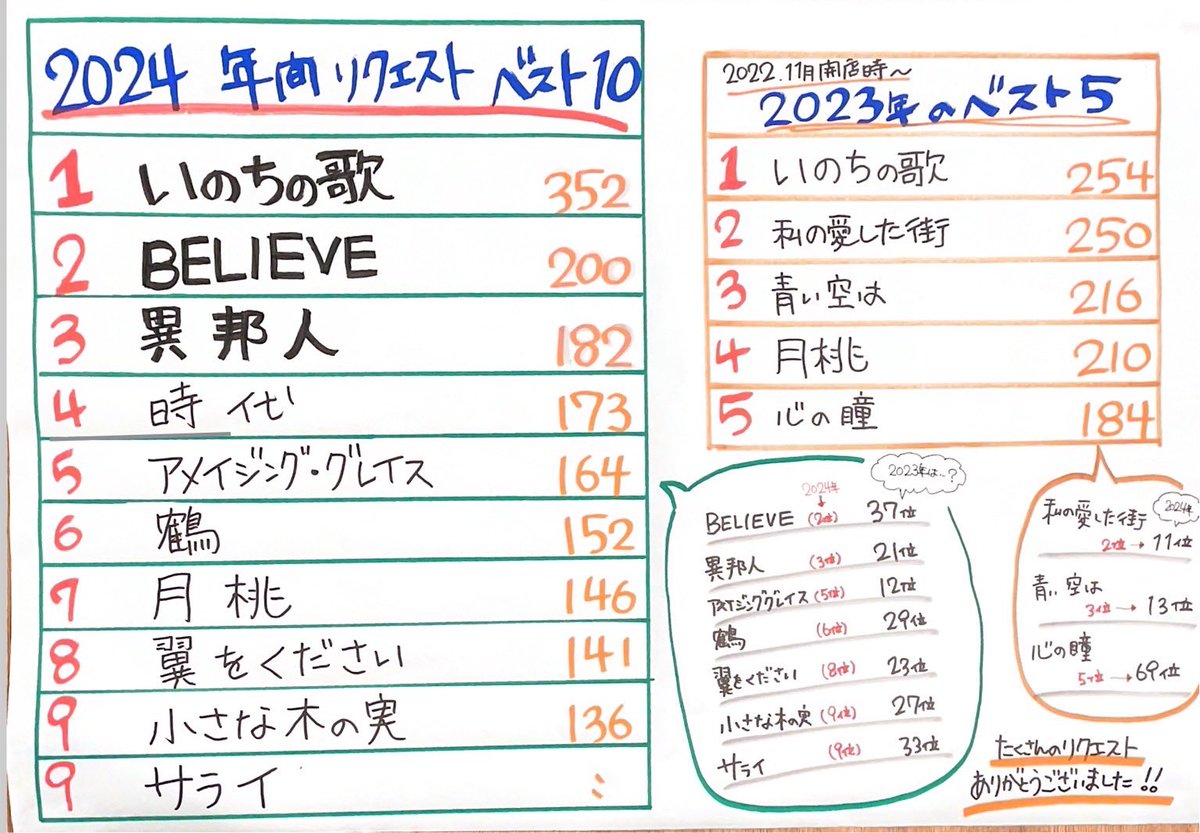 2024 年間リクエスト ベスト10
1 いのちの歌 352
2 BELIEVE 200
3 異邦人 182
4 時代 173
5 アメイジング・グレイス 164
6 鶴 152
7 月桃 146
8 翼をください 141
9 小さな木の実 136
9 サライ 〃
2022.11月開店時～
2023年のベスト5
1 いのちの歌 254
2 私の愛した街 250
3 青い空は 216
4 月桃 210
5 心の瞳 184
2023年は…?
2024年
↓
BELIEVE (2位) 37位
異邦人 (3位) 21位
アメイジンググレイス (5位) 12位
鶴 (6位) 29位
翼をください (8位) 23位
小さな木の実 (9位) 27位
サライ (9位) 33位
2024年
私の愛した街
2位→11位
青い空は
3位→13位
心の瞳
5位→69位
たくさんのリクエスト
ありがとうございました!!